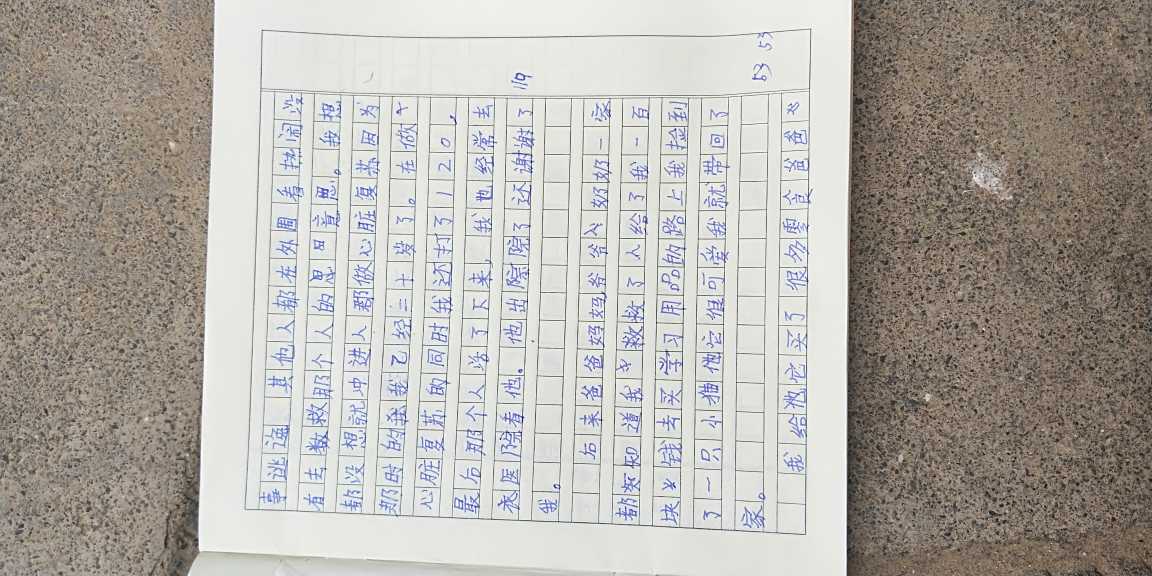 事逃逸。其他人都在外围看热闹没
有去数救那个人的思意思。我想
都没想就冲进人群做心脏复苏因为
那时的我我已经三十岁了。在做
心脏复苏的同时我还打了120，
最后那个人活了下来，我也经常去
医院看他。他出院了还谢谢了
119
我。
后来爸爸妈妈爷爷奶奶一家
都知道我救了人给了我一百
块钱去买学习用品的路上我捡到
了一只小猫他它很可爱我就带回了
家。
53 53
我给他它买了很多零食爸爸